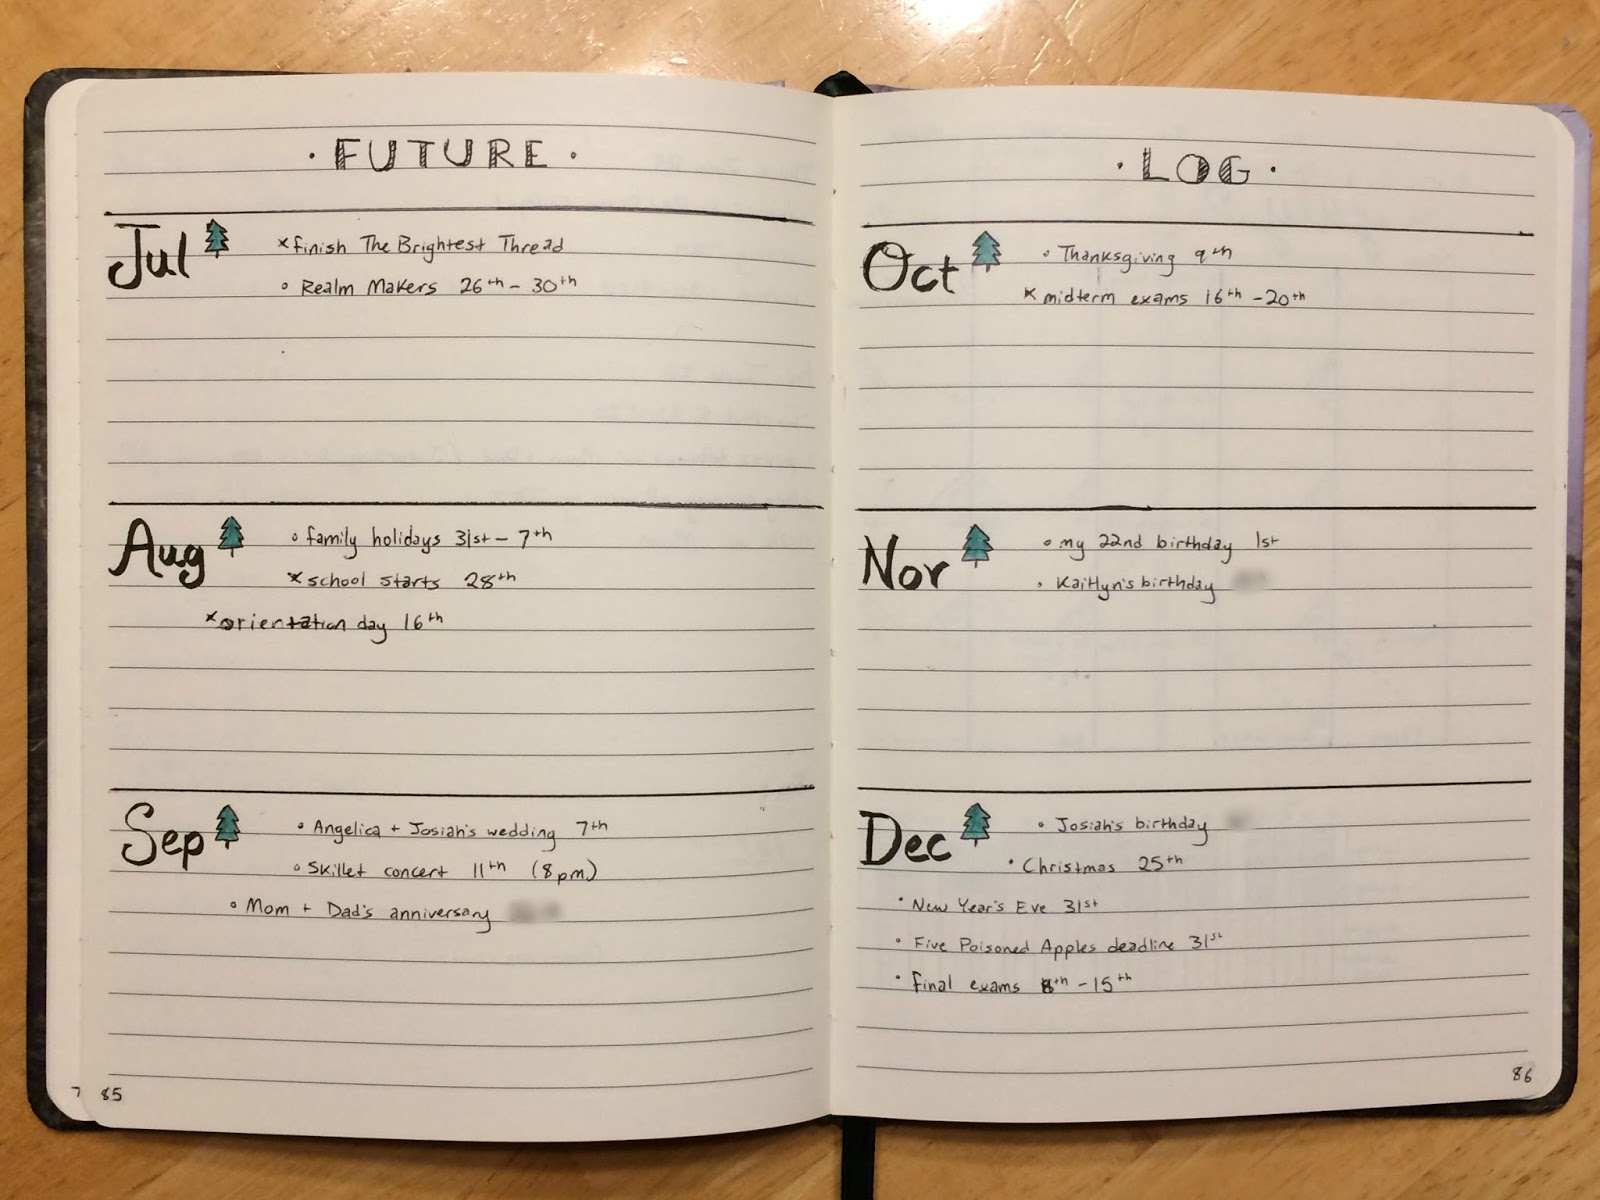 · FUTURE ·
Jul
×finish The Brightest Thread
• Realm Makers 26th - 30th
Aug
• family holidays 31st - 7th
×school starts 28th
×orientation day 16th
Sep
• Angelica + Josiah's wedding 7th
• Skillet concert 11th (8pm)
• Mom + Dad's anniversary
7 85
· LOG ·
Oct
• Thanksgiving 9th
×midterm exams 16th - 20th
Nov
• my 22nd birthday 1st
• Kaitlyn's birthday
Dec
• Josiah's birthday
• Christmas 25th
• New Year's Eve 31st
• Five Poisoned Apples deadline 31st
• final exams 8th - 15th
86